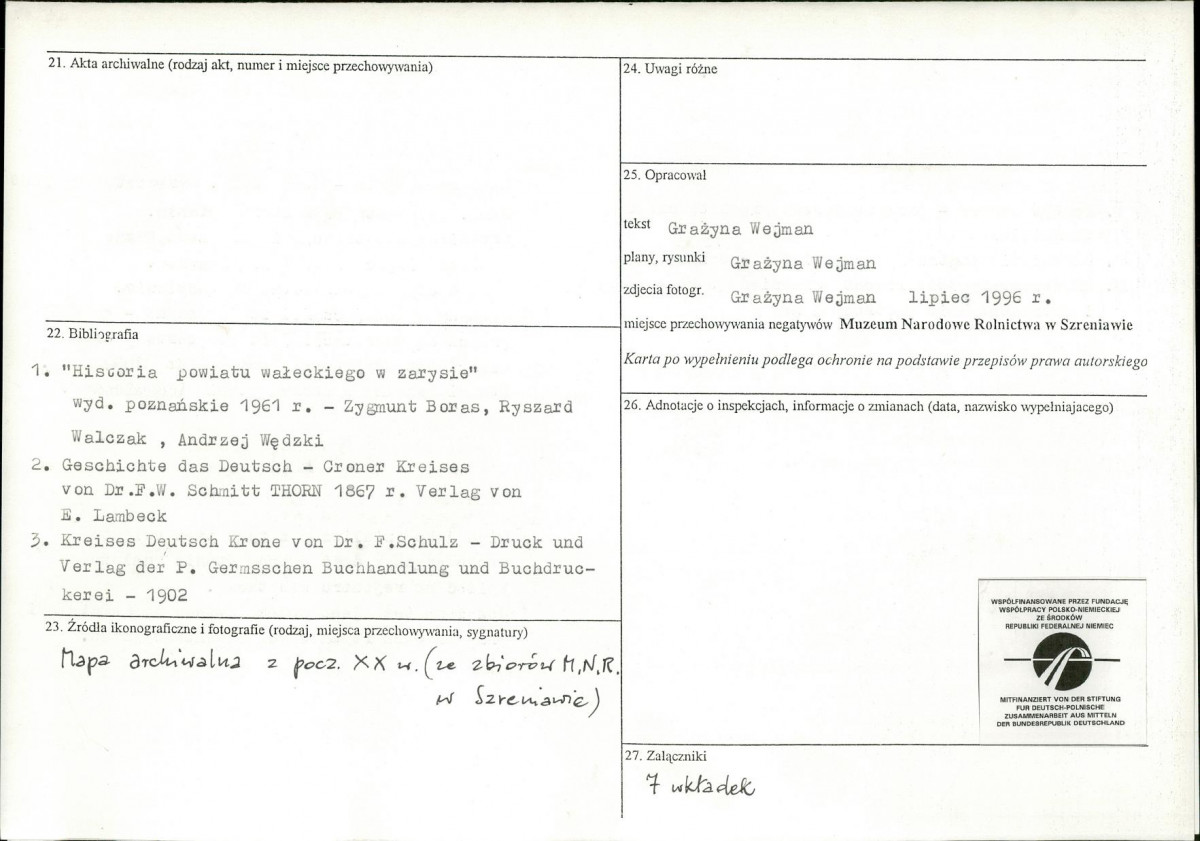 21. Akta archiwalne (rodzaj akt, numer i miejsce przechowywania)
22. Bibliografia
1. "Historia powiatu wałeckiego w zarysie"
wyd. poznańskie 1961 r. - Zygmunt Boras, Ryszard
Walczak , Andrzej Wędzki
2. Geschichte das Deutsch - Croner Kreises
von Dr.F.W. Schmitt THORN 1867 r. Verlag von
E. Lambeck
3. Kreises Deutsch Krone von Dr. F.Schulz - Druck und
Verlag der P. Germsschen Buchhandlung und Buchdruc-
kerei - 1902
23. Źródła ikonograficzne i fotografie (rodzaj, miejsca przechowywania, sygnatury)
Mapa archiwalna z pocz. XX w. (ze zbiorów M.N.R.
w Szreniawie)
24. Uwagi różne
25. Opracował
tekst Grażyna Wejman
plany, rysunki Grażyna Wejman
zdjecia fotogr. Grażyna Wejman lipiec 1996 r.
miejsce przechowywania negatywów Muzeum Narodowe Rolnictwa w Szreniawie
Karta po wypełnieniu podlega ochronie na podstawie przepisów prawa autorskiego
26. Adnotacje o inspekcjach, informacje o zmianach (data, nazwisko wypełniajacego)
WSPÓŁFINANSOWANE PRZEZ FUNDACJĘ
WSPÓŁPRACY POLSKO-NIEMIECKIEJ
ZE ŚRODKÓW
REPUBLIKI FEDERALNEJ NIEMIEC
MITFINANZIERT VON DER STIFTUNG
FUR DEUTSCH-POLNISCHE
ZUSAMMENARBEIT AUS MITTELN
DER BUNDESREPUBLIK DEUTSCHLAND
27. Załączniki
7 wkładek